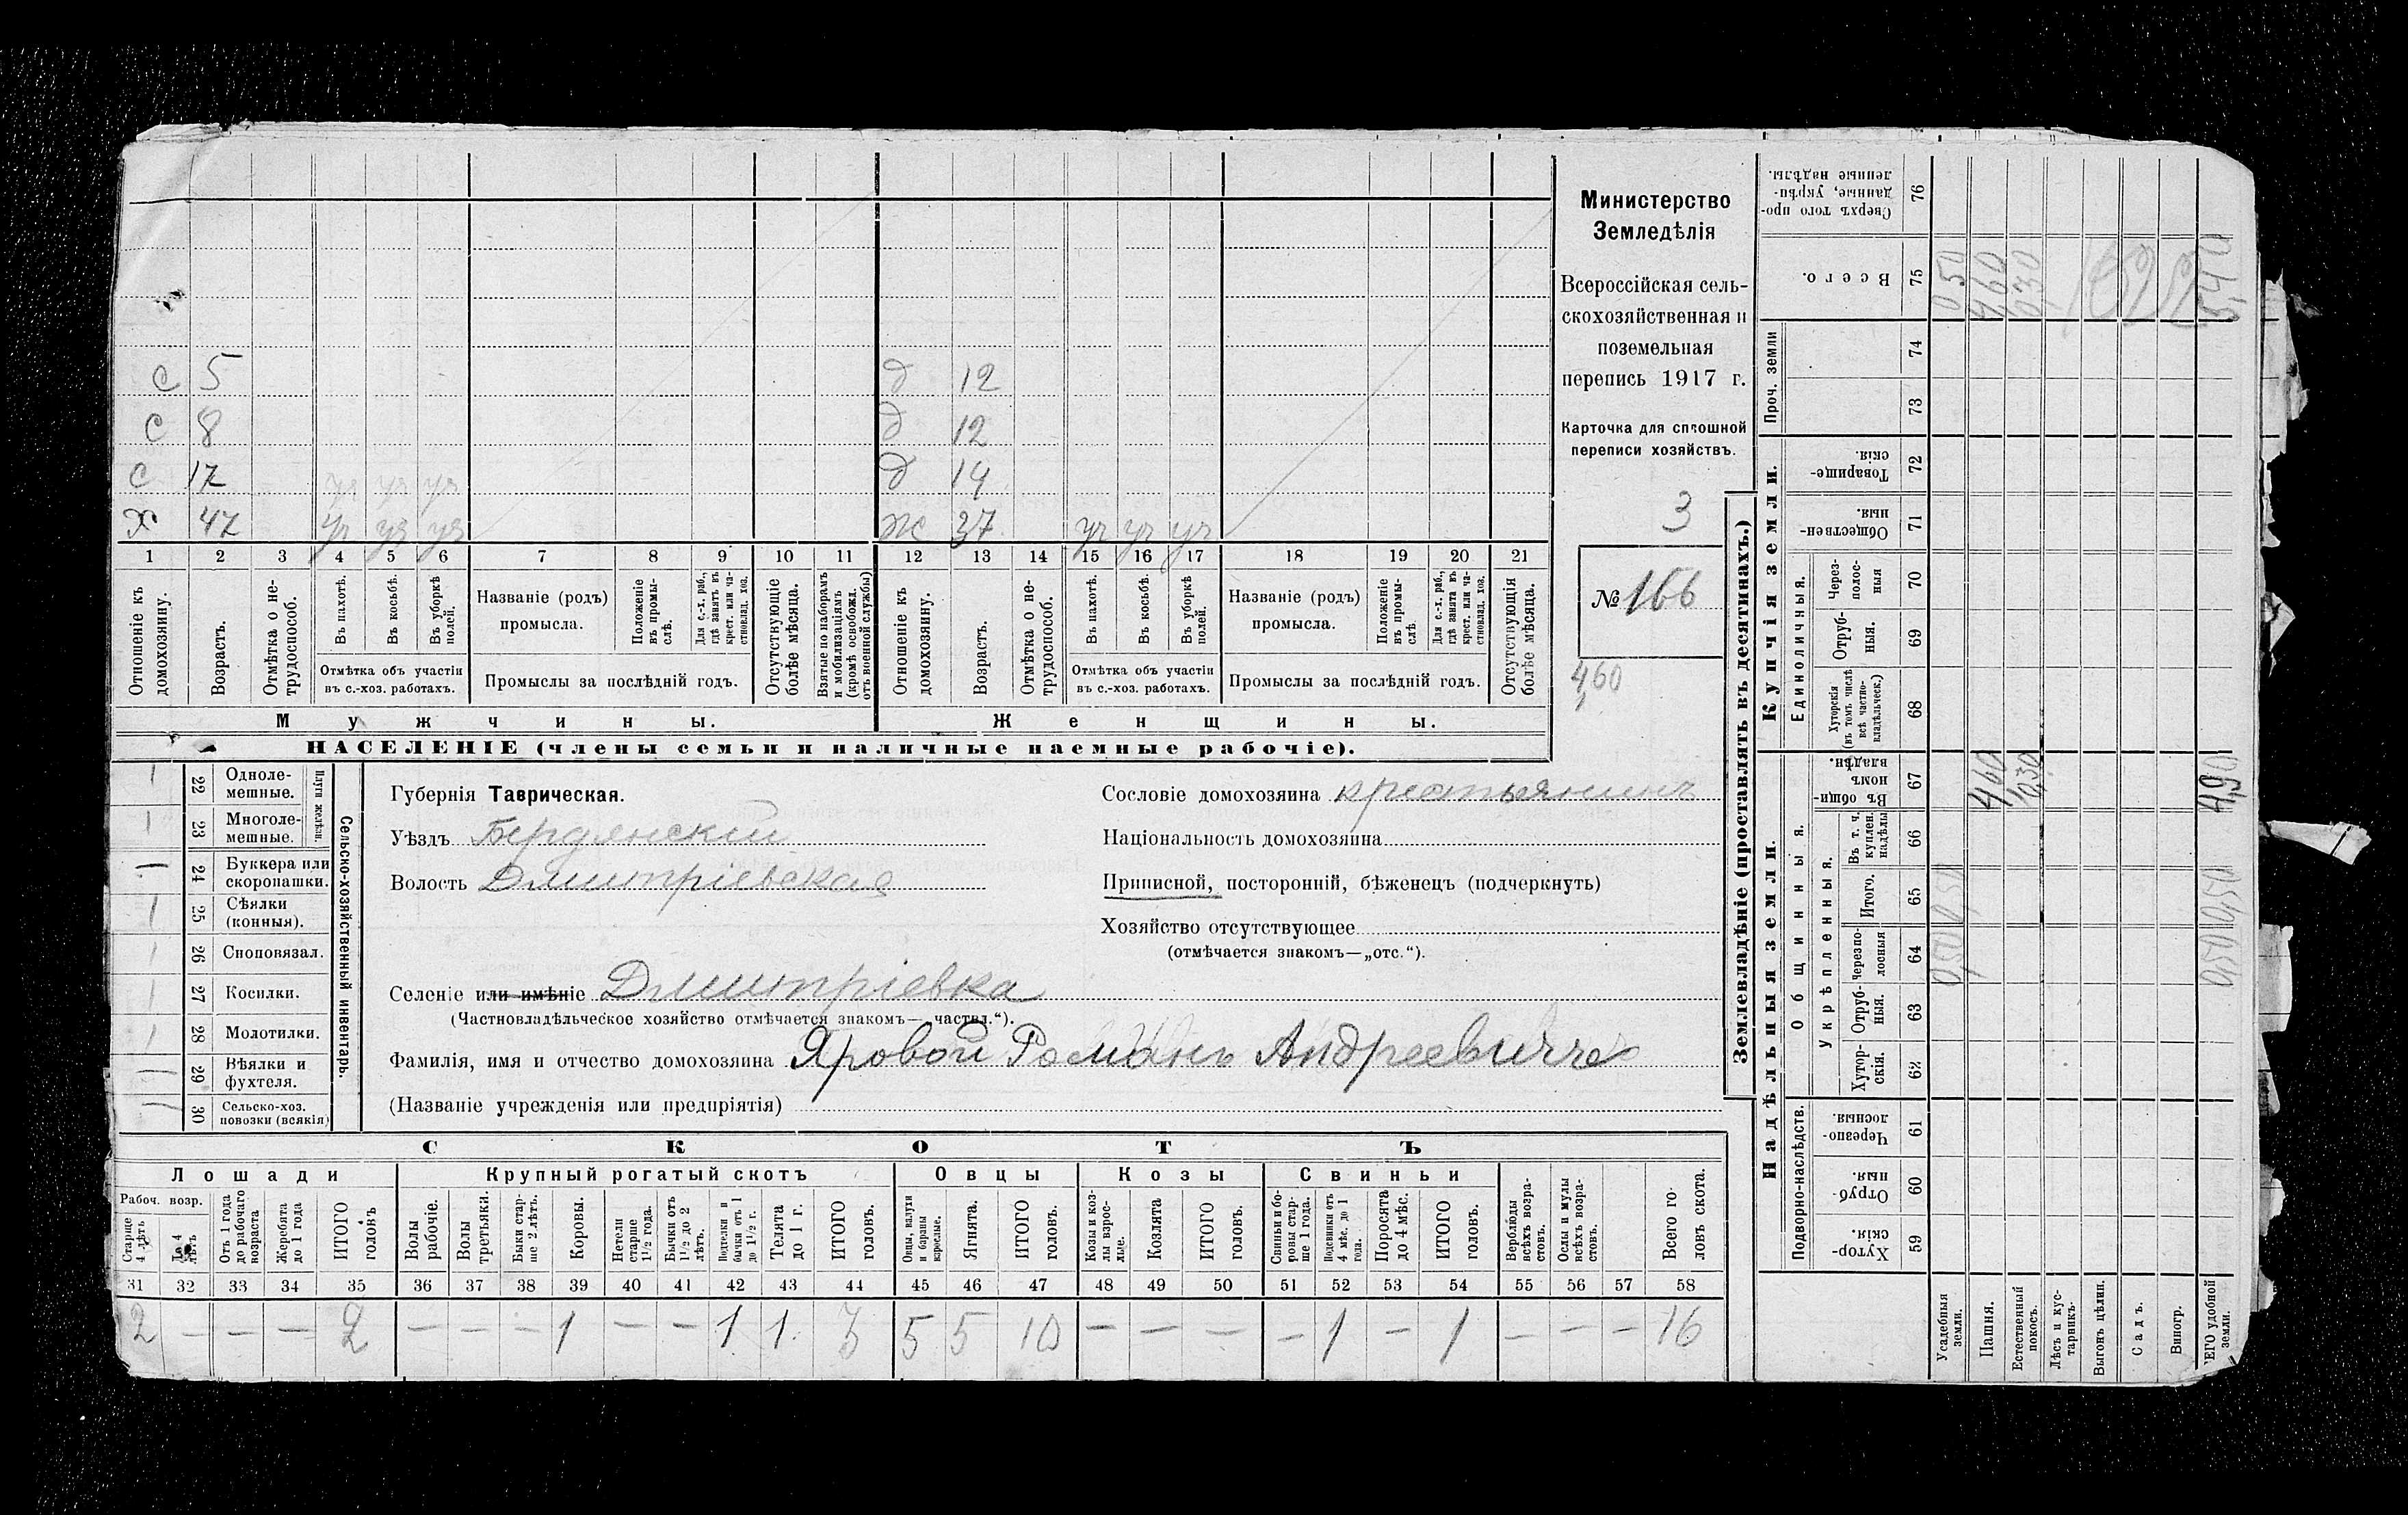 с 5 д 12
с 8 д 12
с 17 уч уч уч д 14
х 47 уч уч уч ж 37 уч уч уч
1 2 3 4 5 6 7 8 9 10 11 12 13 14 15 16 17 18 19 20 21
Отношеніе къ домохозяину.
Возрастъ.
Отмѣтка о нетрудоспособ.
Въ пахотѣ.
Въ косьбѣ.
Въ уборкѣ полей.
Отмѣтка объ участіи въ с.-хоз. работахъ.
Названіе (родъ) промысла.
Положеніе въ промыслѣ.
Для с.-х. раб., гдѣ занятъ въ крест. или частновлад. хоз.
Промыслы за послѣдній годъ.
Отсутствующіе болѣе мѣсяца.
Взятые по наборамъ и мобилизаціямъ (кромѣ освобожд. отъ военной службы)
Отношеніе къ домохозяину.
Возрастъ.
Отмѣтка о нетрудоспособ.
Въ пахотѣ.
Въ косьбѣ.
Въ уборкѣ полей.
Отмѣтка объ участіи въ с.-хоз. работахъ.
Названіе (родъ) промысла.
Положеніе въ промыслѣ.
Для с.-х. раб., гдѣ занята въ крест. или частновлад. хоз.
Промыслы за послѣдній годъ.
Отсутствующія болѣе мѣсяца.
Мужчины. Женщины.
НАСЕЛЕНІЕ (члены семьи и наличные наемные рабочіе).
Министерство
Земледѣлія
Всероссійская сель-
скохозяйственная и
поземельная
перепись 1917 г.
Карточка для сплошной
переписи хозяйствъ.
3
№ 166
4,60
Сельско-хозяйственный инвентарь.
Плуги желѣзн.
1 22 Одноле-
мешные.
1 23 Многоле-
мешные.
— 24 Буккера или
скоропашки.
1 25 Сѣялки
(конныя).
1 26 Сноповязал.
1 27 Косилки.
1 28 Молотилки.
— 29 Вѣялки и
фухтеля.
30 Сельско-хоз.
повозки (всякія)
Губернія Таврическая.
Уѣздъ Бердянскій
Волость Дмитріевская
Сословіе домохозяина крестьянинъ
Національность домохозяина
Приписной, посторонній, бѣженецъ (подчеркнуть)
Хозяйство отсутствующее
(отмѣчается знакомъ—„отс.“).
Селеніе или имѣніе Дмитріевка
(Частновладѣльческое хозяйство отмѣчается знакомъ—„частвл.“).
Фамилія, имя и отчество домохозяина Яровой Романъ Андреевичъ
(Названіе учрежденія или предпріятія)
СКОТЪ
Лошади Крупный рогатый скотъ Овцы Козы Свиньи
Рабоч. возр.
Старше 4 лѣтъ
До 4 лѣтъ
Отъ 1 года до рабочаго возраста
Жеребята до 1 года
ИТОГО головъ
Волы рабочіе.
Волы третьяки.
Быки старше 2 лѣтъ.
Коровы.
Нетели старше 1½ года.
Бычки отъ 1½ до 2 лѣтъ.
Подтелки и бычки отъ 1 до 1½ г.
Телята до 1 г.
ИТОГО головъ.
Овцы, валухи и бараны взрослые.
Ягнята.
ИТОГО головъ.
Козы и козлы взрослые.
Козлята
ИТОГО головъ.
Свиньи и боровы старше 1 года.
Подсвинки отъ 4 мѣс. до 1 года.
Поросята до 4 мѣс.
ИТОГО головъ.
Верблюды всѣхъ возрастовъ.
Ослы и мулы всѣхъ возрастовъ.
Всего головъ скота.
31 32 33 34 35 36 37 38 39 40 41 42 43 44 45 46 47 48 49 50 51 52 53 54 55 56 57 58
2 — — — 2 — — — 1 — — 1 1 3 5 5 10 — — — — 1 — 1 — — — 16
Землевладѣніе (проставлять въ десятинахъ.)
Надѣльныя земли. Купчія земли. Проч. земли
Подворно-наслѣдств.
Общинныя.
Укрѣпленныя.
Единоличныя.
Сверхъ того проданные, укрѣпленные надѣлы. 76
Всего. 75 0,50 4,60 0,30 5,40
74
73
Товарищескія. 72
Общественныя. 71
Черезполосныя 70
Отрубныя. 69
Хуторскія (въ томъ числѣ всѣ частновладѣльческ.) 68
Въ общинномъ владѣн. 67 4,60 0,30 4,90
Въ т. ч. куплен. надѣлы 66
Итого. 65 0,50 0,50
Черезполосныя 64 0,50 0,50
Отрубныя. 63
Хуторскія. 62
Черезполосныя. 61
Отрубныя. 60
Хуторскія. 59
Усадебныя земли.
Пашня.
Естественный покосъ.
Лѣсъ и кустарникъ.
Выгонъ цѣлин.
Садъ.
Виногр.
ЕГО удобной земли.